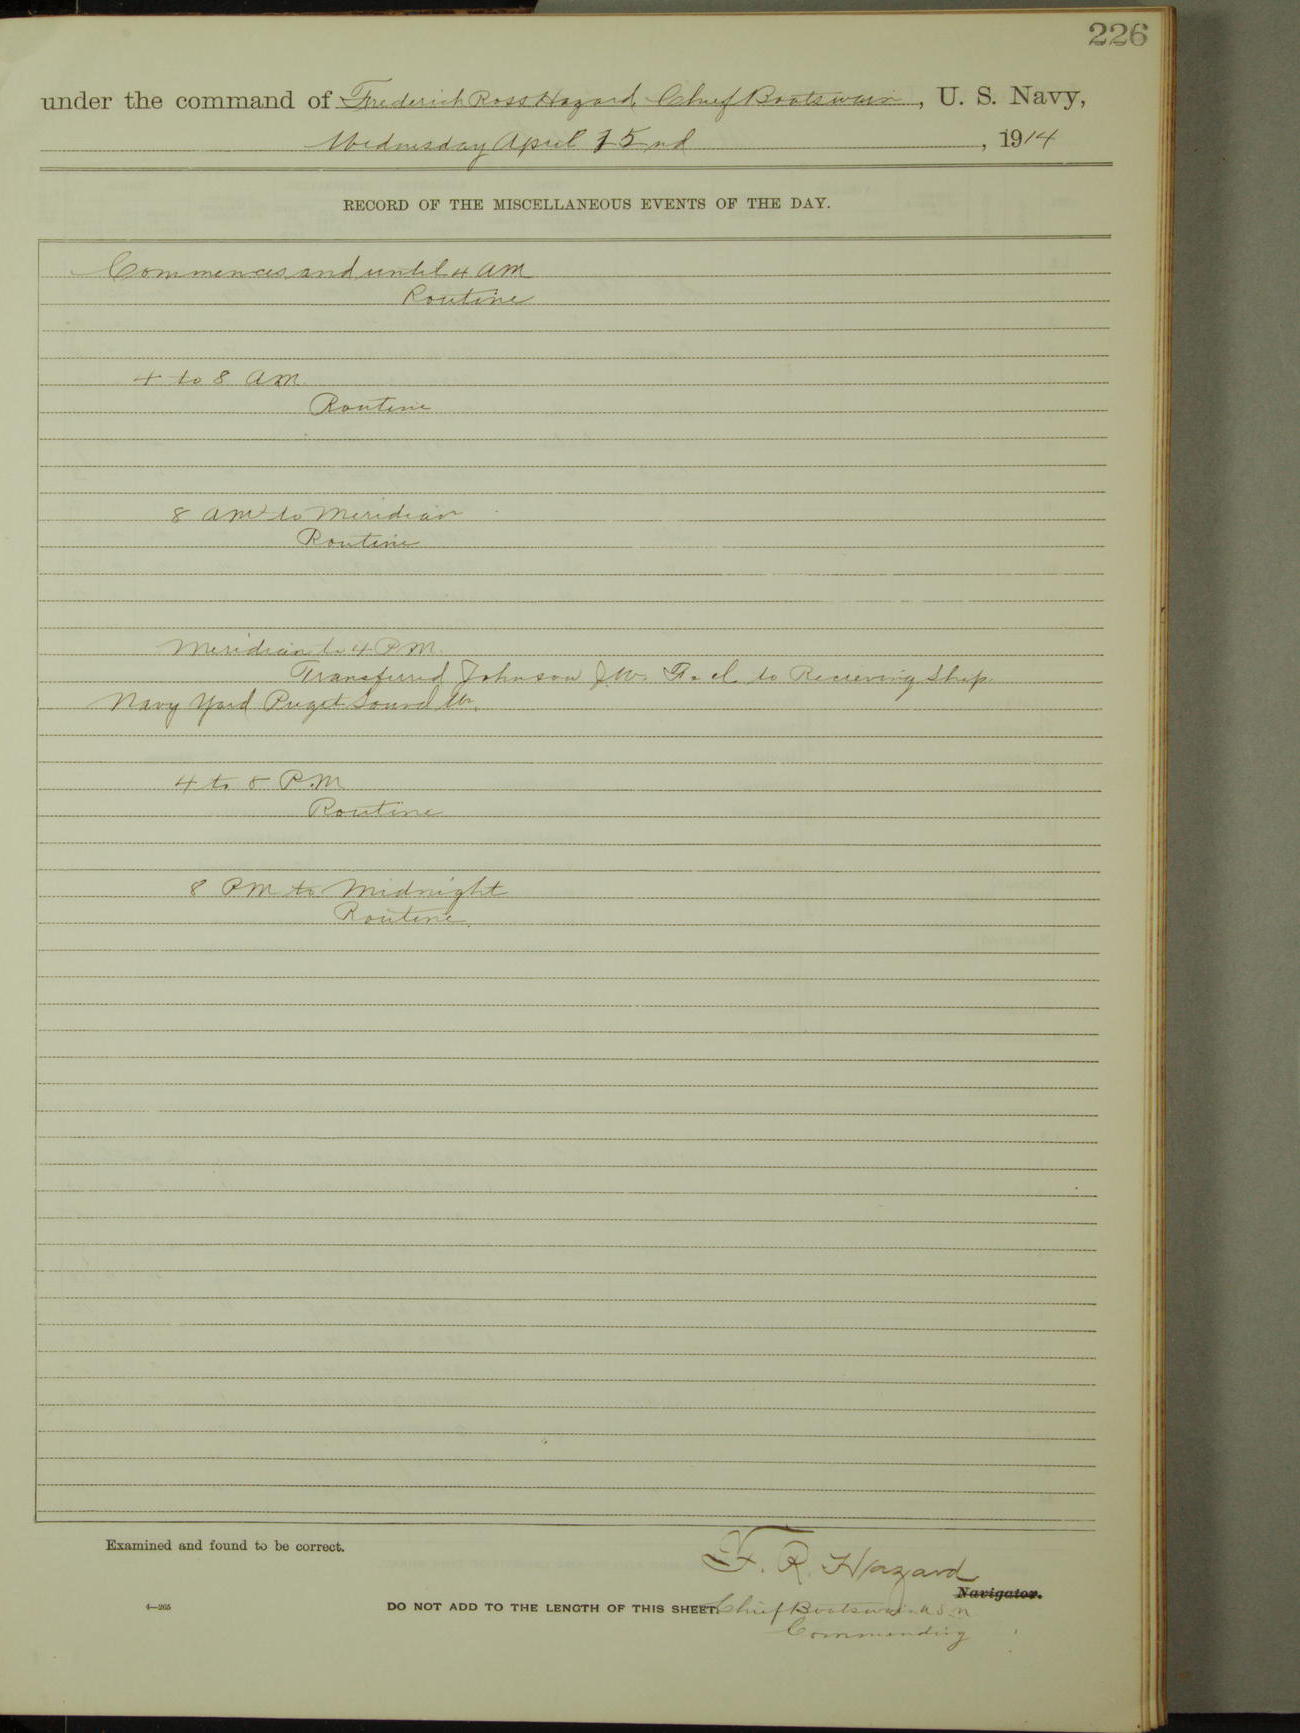 226
under the command of Frederick Ross Hazard, Chief Boatswain, U. S. Navy,
Wednesday April 15nd, 1914
RECORD OF THE MISCELLANEOUS EVENTS OF THE DAY.
Commences and until 4 AM
Routine
4 to 8 AM.
Routine
8 AM to Meridian
Routine
Meridian to 4 PM.
Transferred Johnson J.W. to Recieving Ship
Navy Yard Puget Sound Wn.
4 to 8 P.M
Routine
8 PM to Midnight
Routine.
Examined and found to be correct.
F. R. Hazard
Navigator.
4—265
DO NOT ADD TO THE LENGTH OF THIS SHEET.
Chief Boatswain U S N
Commanding